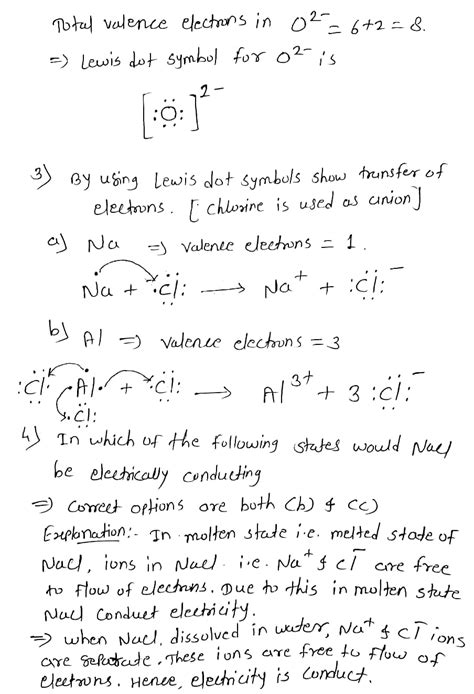 Total valence electrons in O²⁻ = 6+2 = 8.
=) Lewis dot symbol for O²⁻ is
[:Ö:]²⁻
3) By using Lewis dot symbols show transfer of
electrons. [chlorine is used as anion]
a) Na =) valence electrons = 1.
Na + ·Cl: → Na⁺ + :Cl:⁻
b) Al =) valence electrons = 3
:Cl· ·Al· + ·Cl: → Al³⁺ + 3 :Cl:⁻
·Cl:
4) In which of the following states would Nacl
be electrically conducting
=) Correct options are both (b) & (c)
Explanation:- In molten state i.e. melted state of
Nacl, ions in Nacl i.e. Na⁺ & Cl⁻ are free
to flow of electrons. Due to this in molten state
Nacl conduct electricity.
=) when Nacl, dissolved in water, Na⁺ & Cl⁻ ions
are separate. These ions are free to flow of
electrons. Hence, electricity is conduct.